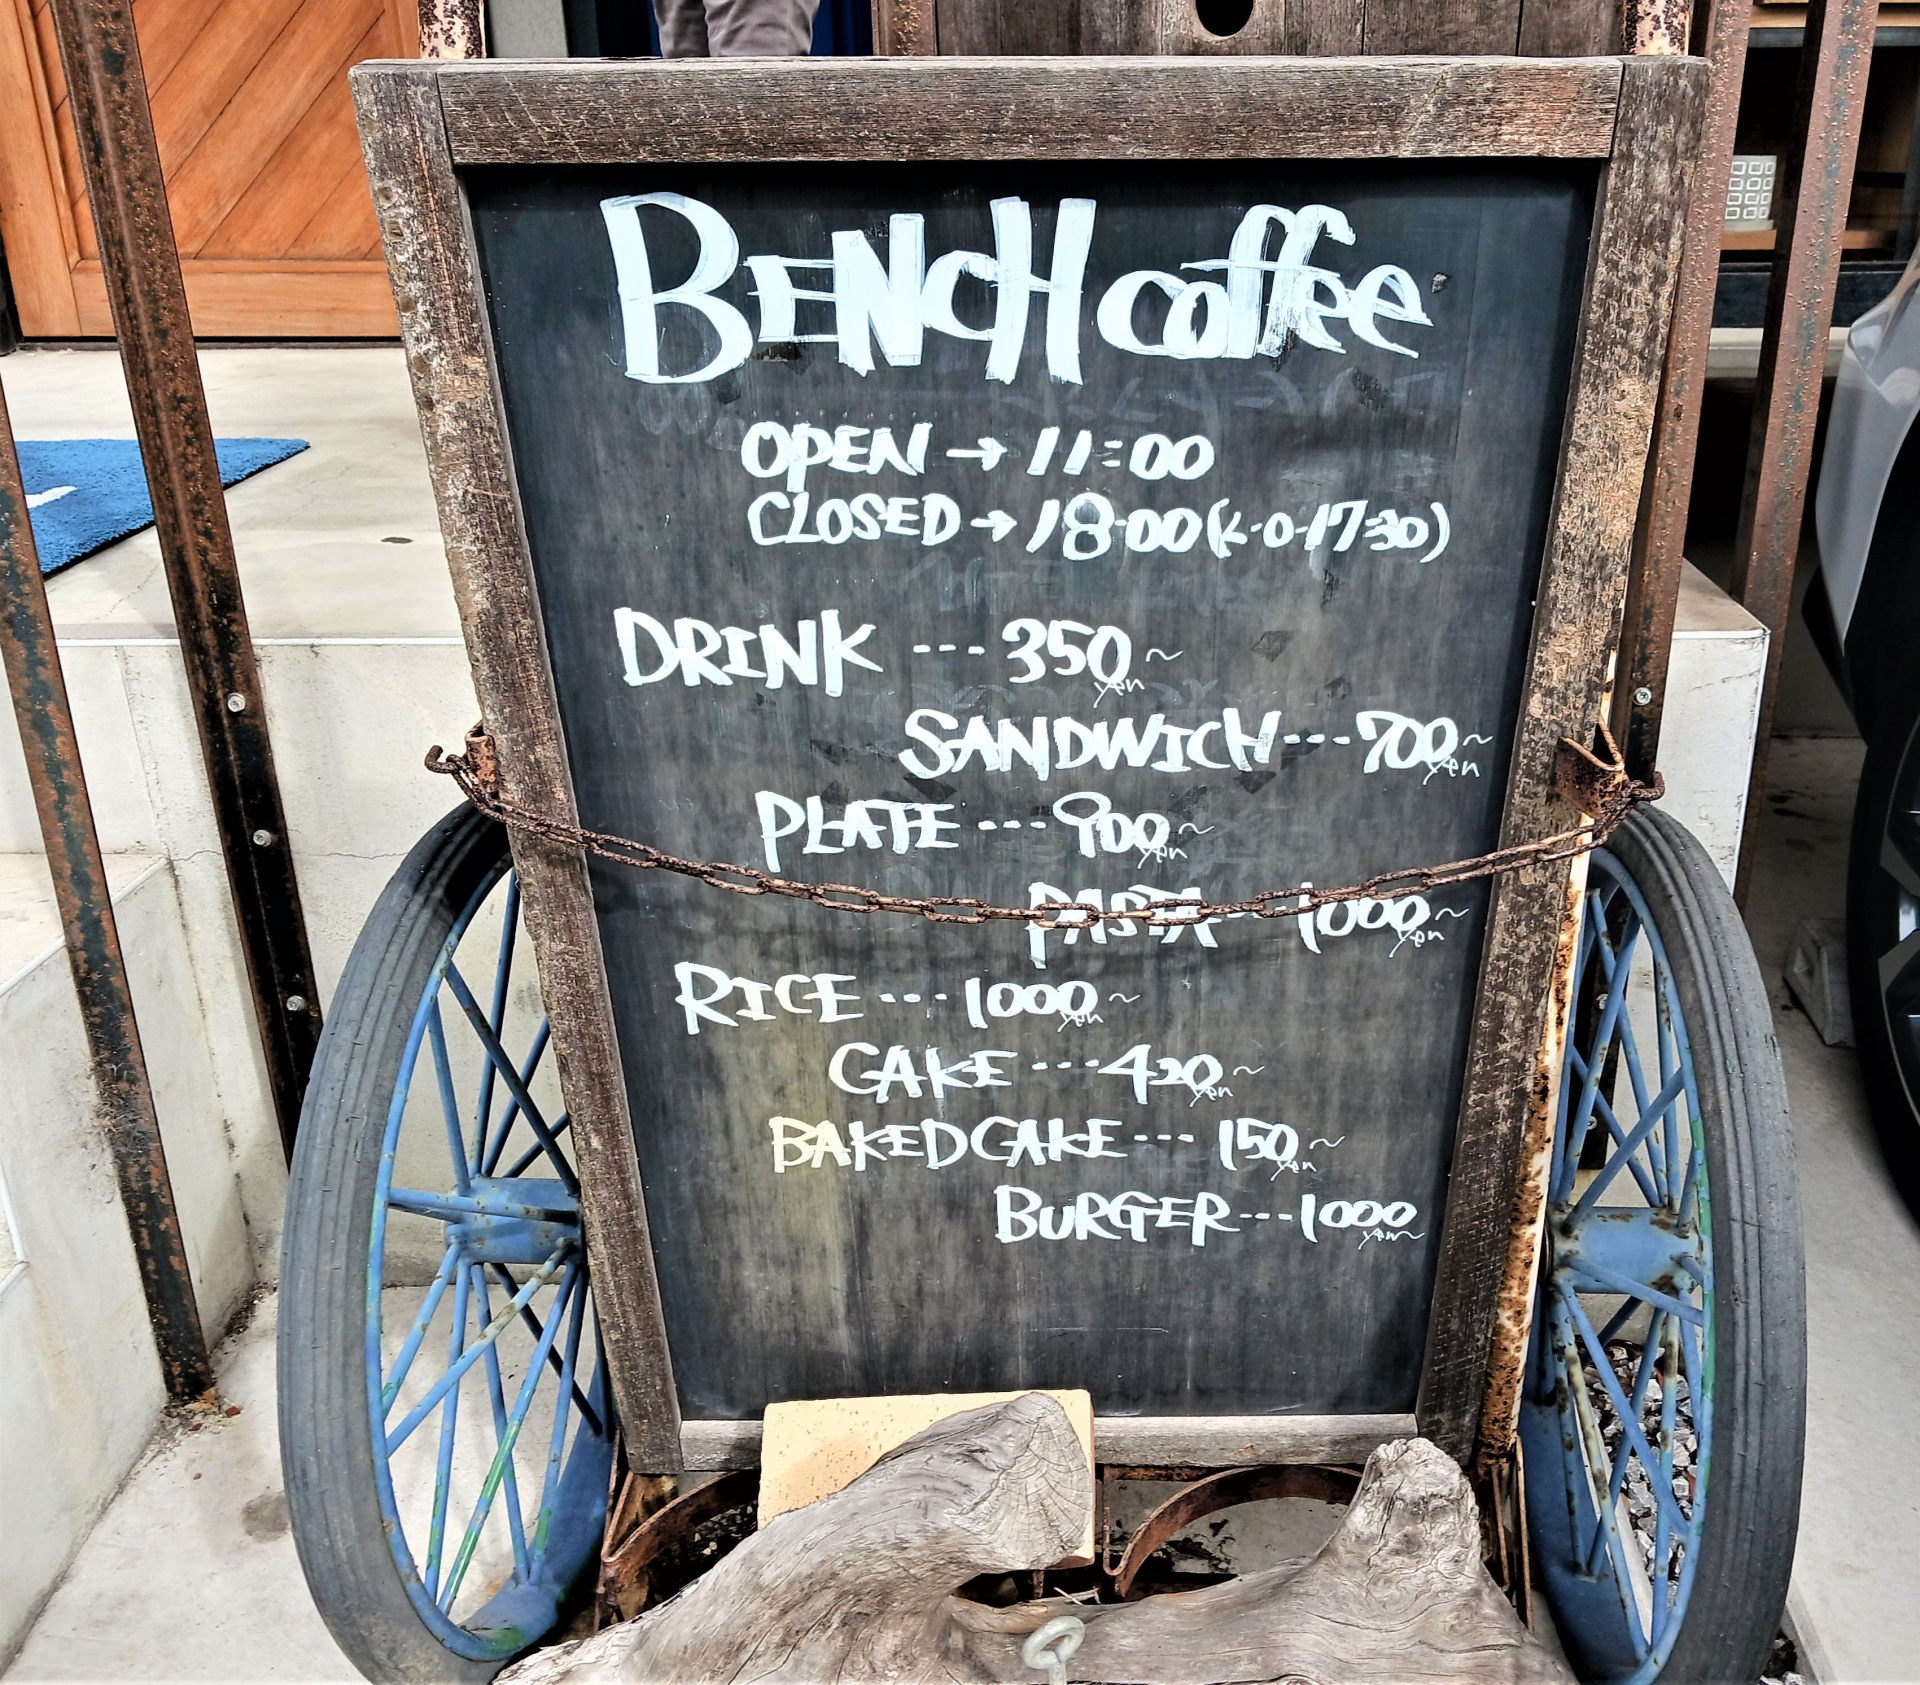 BENCH coffee
OPEN → 11:00
CLOSED → 18:00 (L·O·17:30)
DRINK --- 350yen~
SANDWICH --- 700yen~
PLATE --- 900yen~
PASTA --- 1000yen~
RICE --- 1000yen~
CAKE --- 420yen~
BAKED CAKE --- 150yen~
BURGER --- 1000yen~